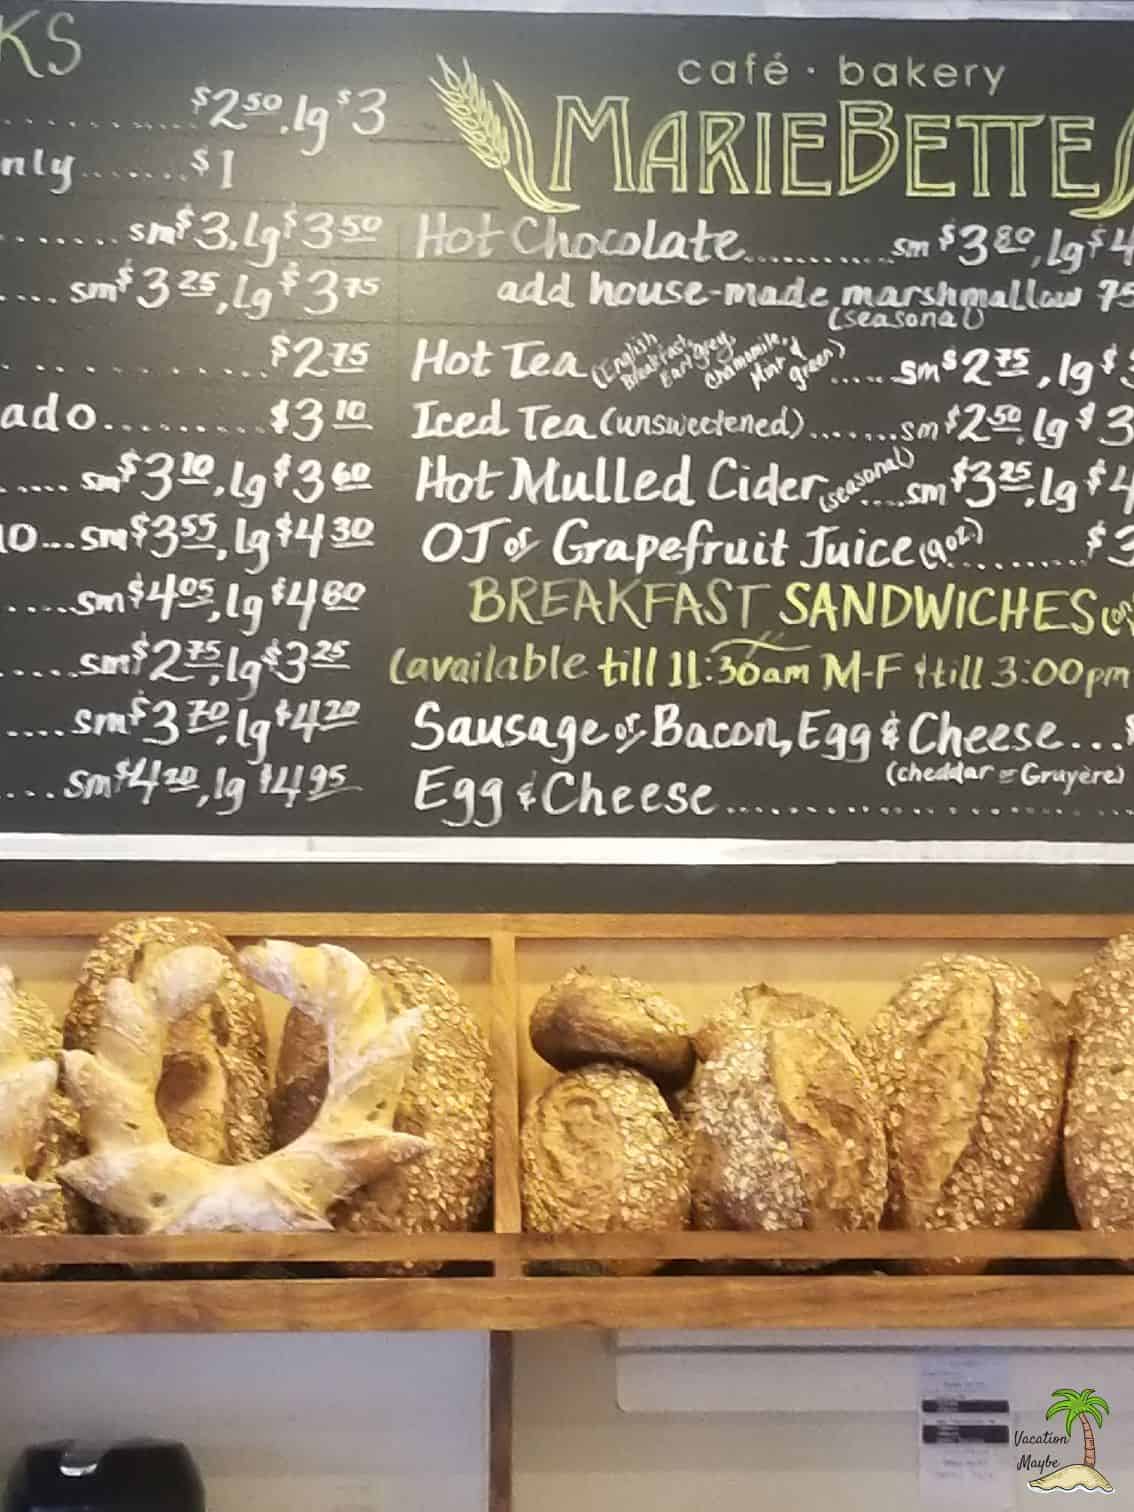 KS
$2 50, lg $3
nly.......$1
sm $3, lg $3 50
sm $3 25, lg $3 75
$2 75
ado.........$3 10
sm $3 10, lg $3 60
o...sm $3 55, lg $4 30
sm $4 05, lg $4 80
sm $2 75, lg $3 25
sm $3 70, lg $4 20
sm $4 20, lg $4 95
café · bakery
MARIEBETTE
Hot Chocolate..........sm $3 80, lg $4
add house-made marshmallow 75
(seasonal)
Hot Tea (English Breakfast, Earl grey, Chamomile, Mint & green)..... sm $2 75, lg $
Iced Tea (unsweetened).......sm $2 50, lg $3
Hot Mulled Cider (seasonal).....sm $3 25, lg $4
OJ or Grapefruit Juice (9oz.).........$3
BREAKFAST SANDWICHES
(available till 11:30am M-F & till 3:00pm
Sausage or Bacon, Egg & Cheese...$
(cheddar or Gruyère)
Egg & Cheese
Vacation
Maybe